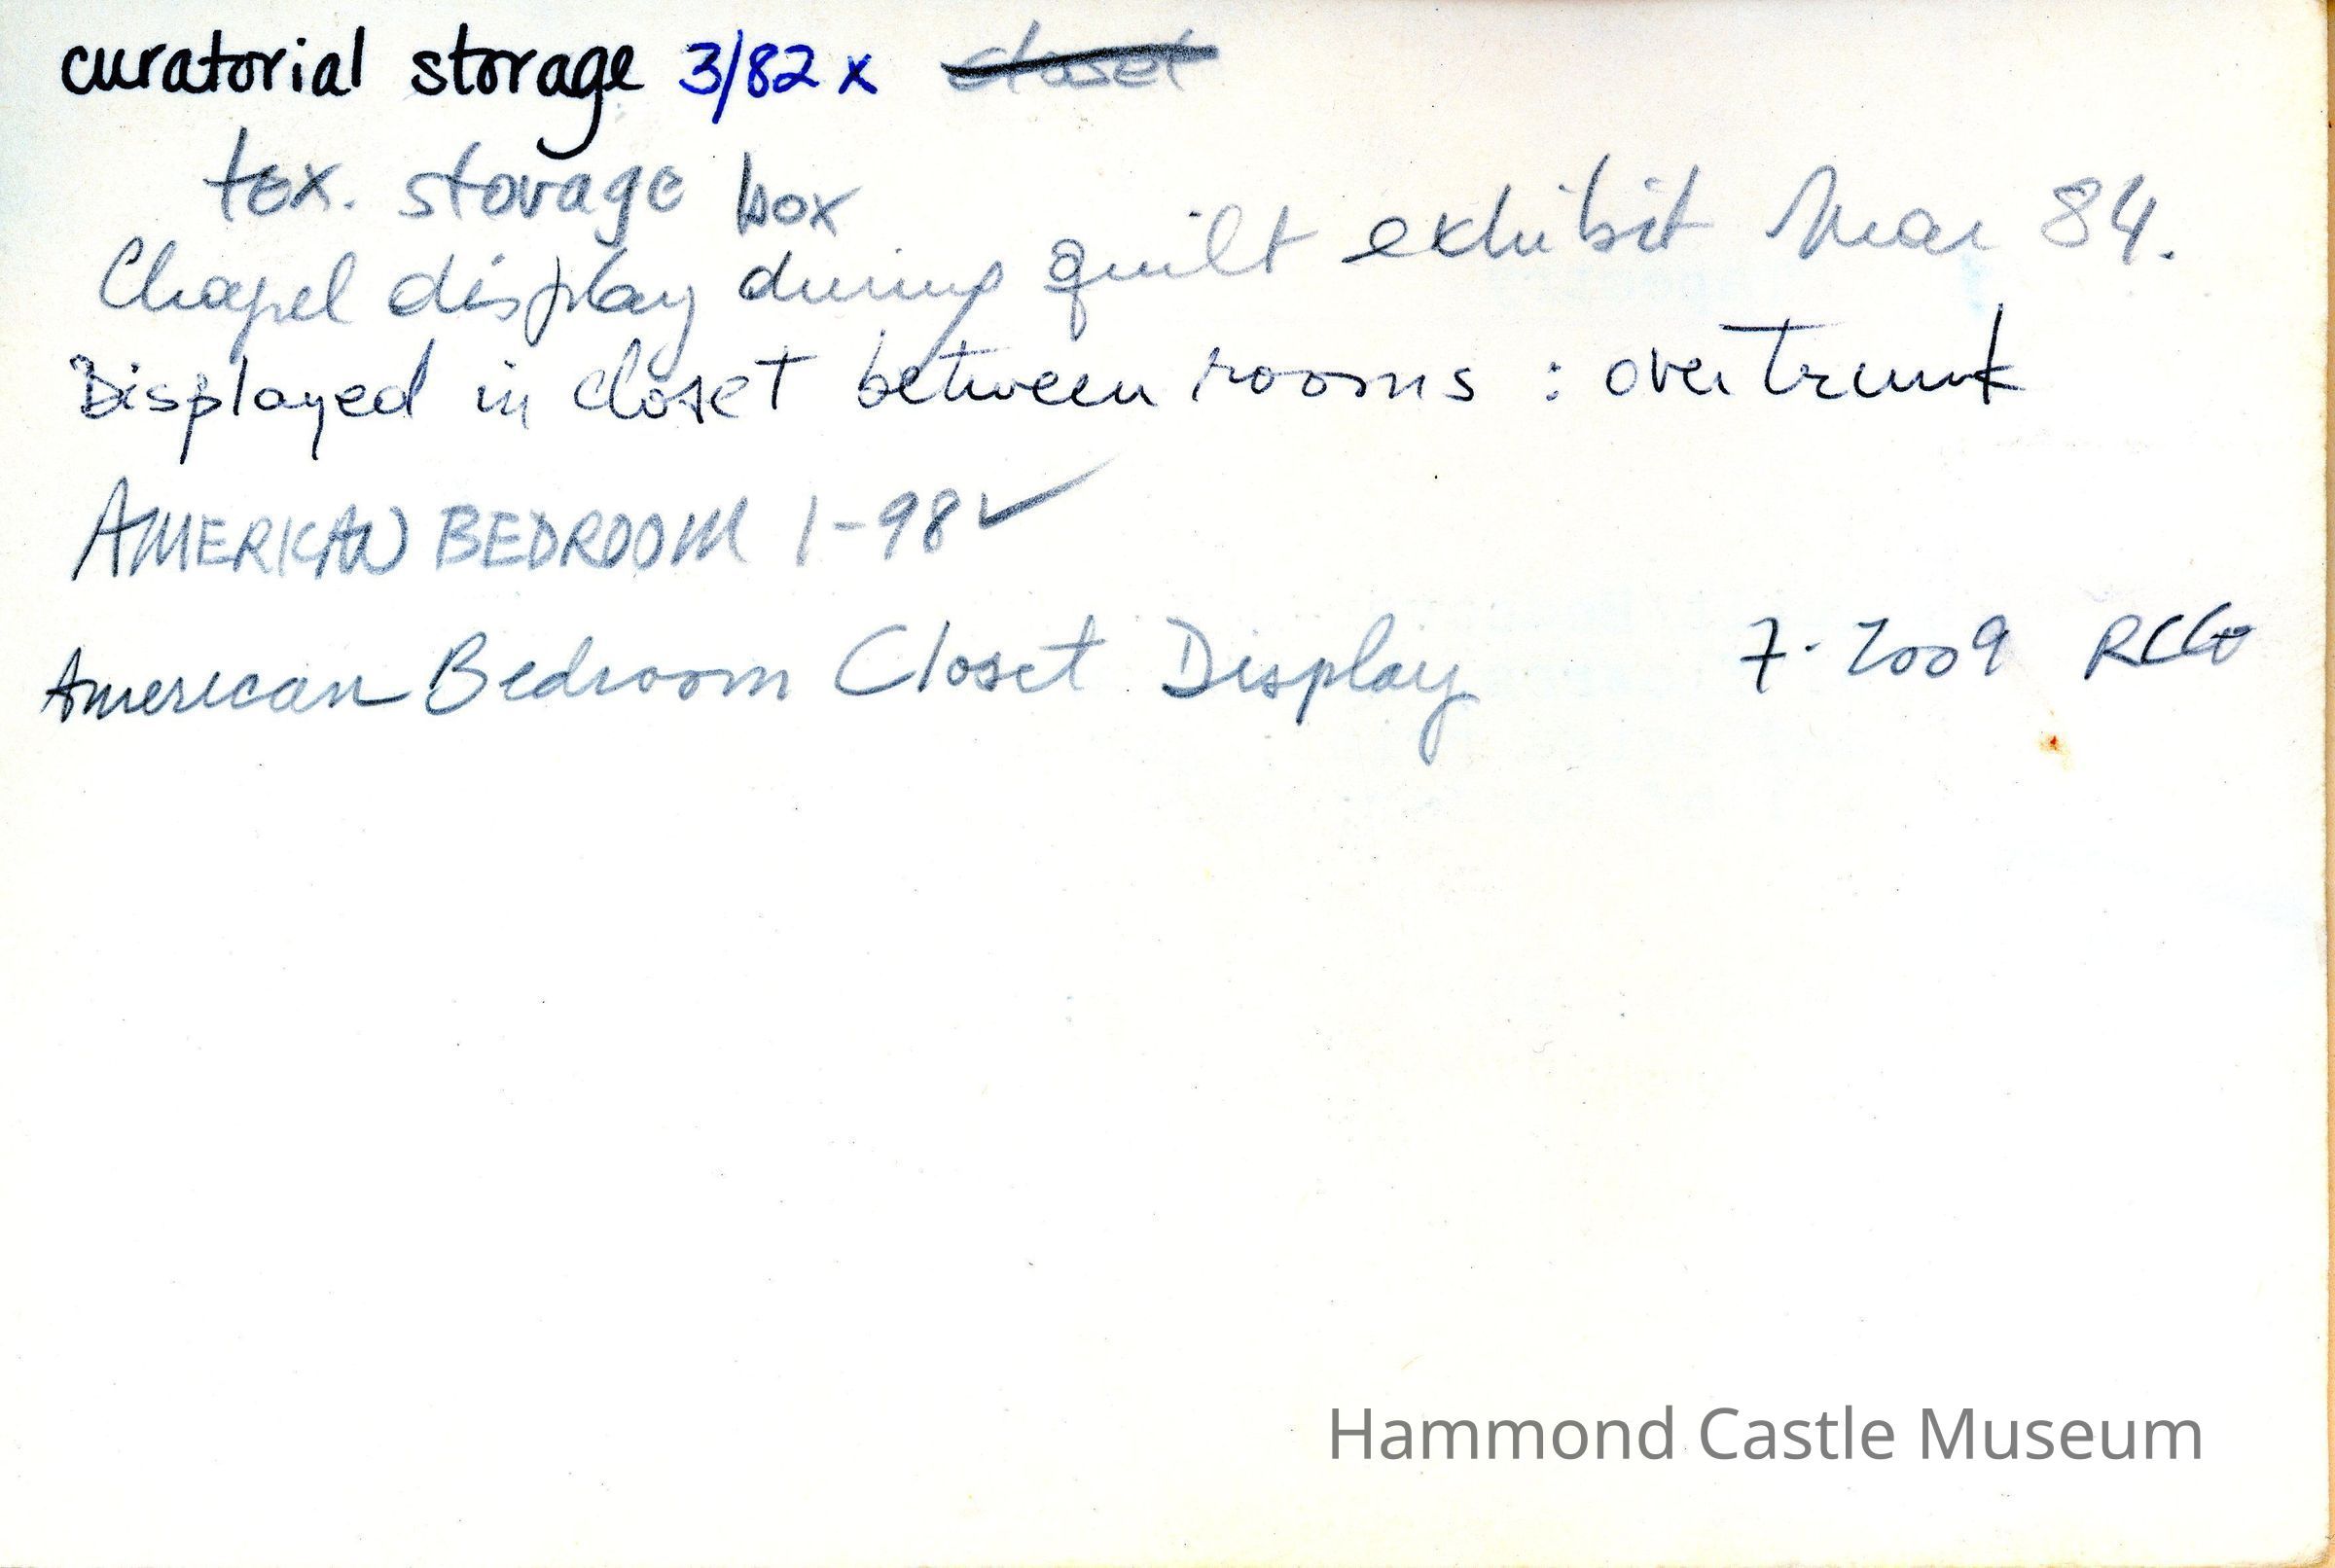 curatorial storage 3/82 x closet
tex. storage box
Chapel display during quilt exhibit Mar 84.
Displayed in closet between rooms : over trunk
AMERICAN BEDROOM 1-98 ✓
American Bedroom Closet Display 7-2009
Hammond Castle Museum